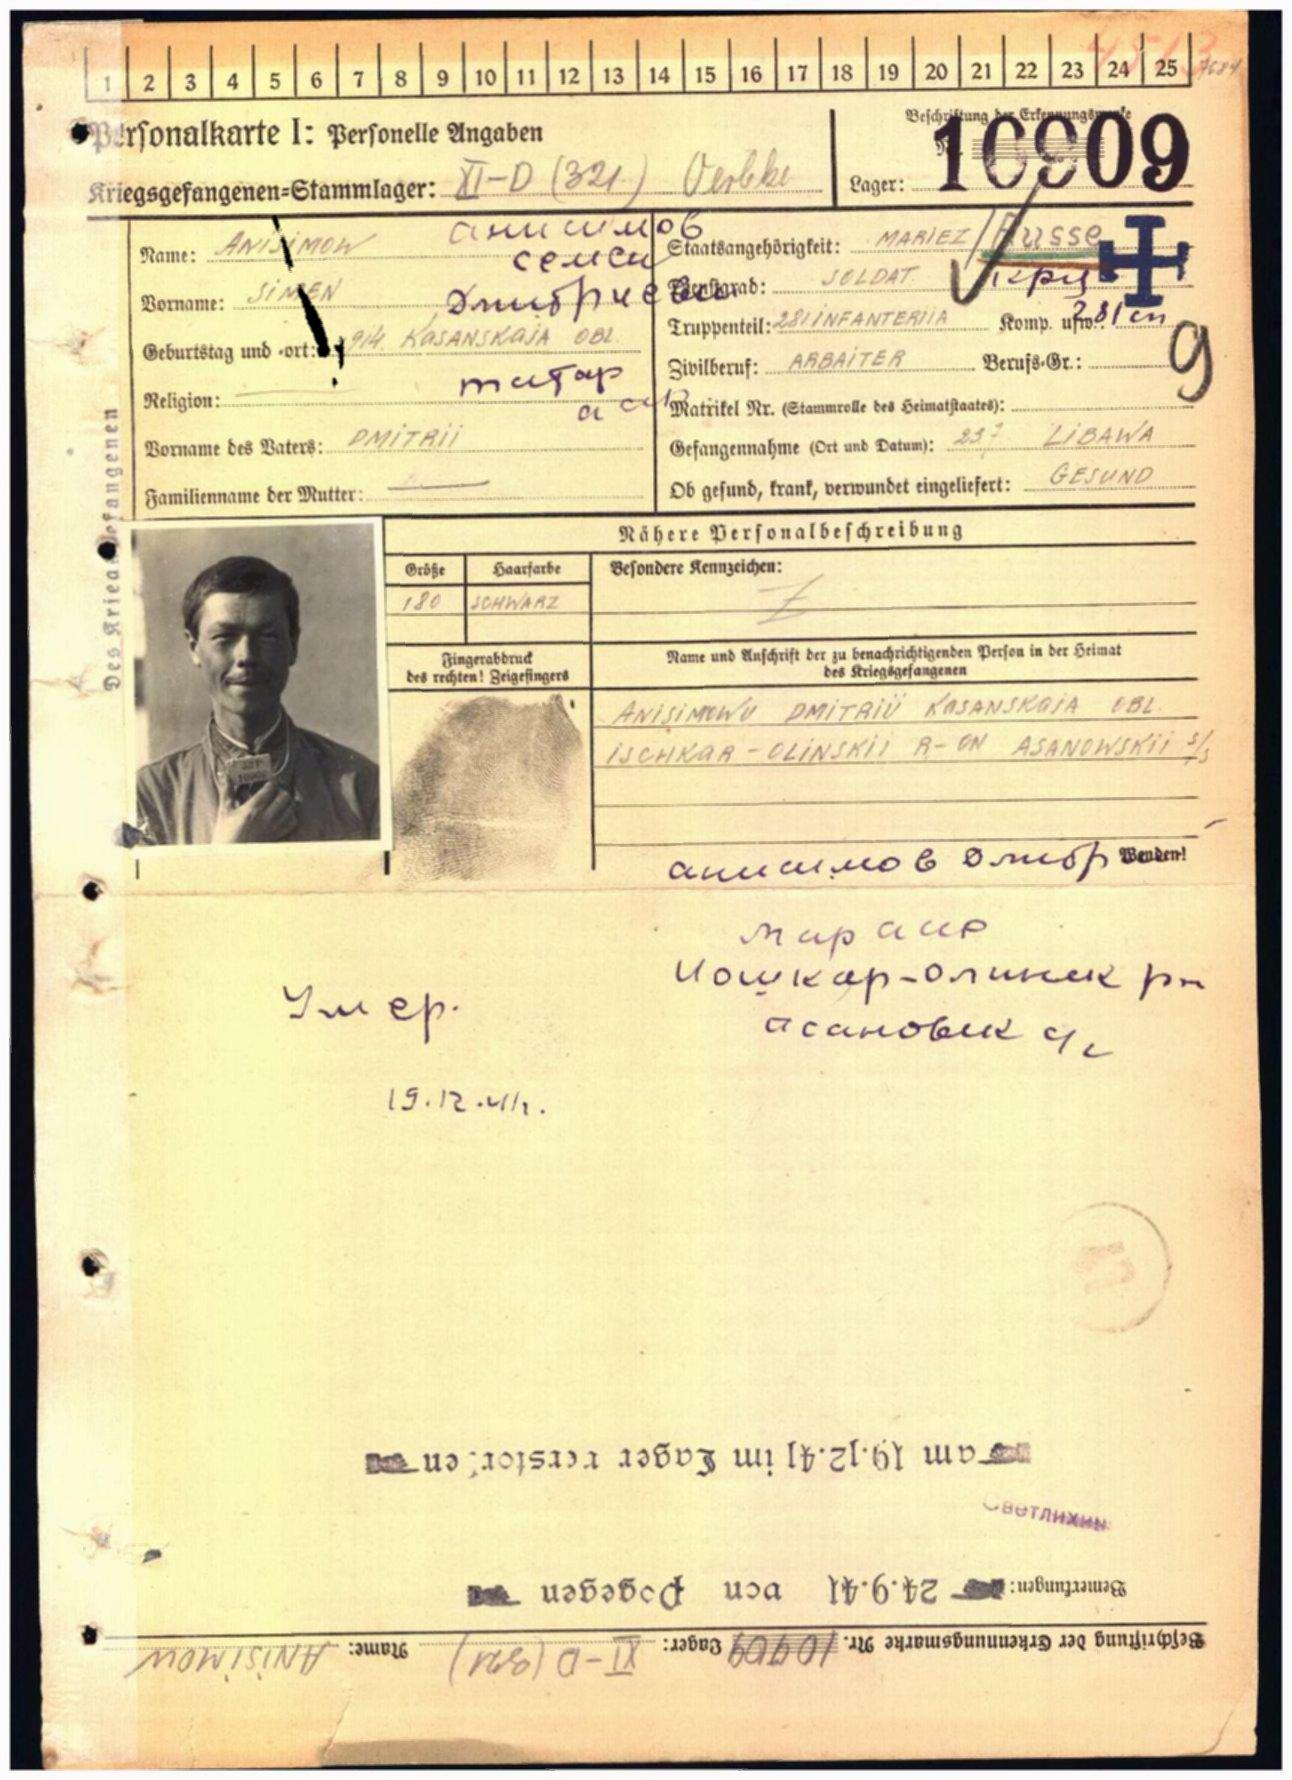 1 2 3 4 5 6 7 8 9 10 11 12 13 14 15 16 17 18 19 20 21 22 23 24 25
Personalkarte I: Personelle Angaben
Beschriftung der Erkennungsmarke
Nr. 10909
Kriegsgefangenen-Stammlager: XI-D (321) Oerbke
Lager:
Des Kriegsgefangenen
Name: ANISIMOW
анисимов
Vorname: SIMEN
семен
Дмитриевич
Geburtstag und -ort: 1914. KASANSKAJA OBL.
Religion:
татар
асср
Vorname des Vaters: DMITRII
Familienname der Mutter:
Staatsangehörigkeit: MARIEZ / Russe
Dienstgrad: SOLDAT. крц
Truppenteil: 281 INFANTERIIA Komp. usw.: 281 сп
Zivilberuf: ARBAITER Berufs-Gr.: 9
Matrikel Nr. (Stammrolle des Heimatstaates):
Gefangennahme (Ort und Datum): 23.7 LIBAWA
Ob gesund, krank, verwundet eingeliefert: GESUND
Nähere Personalbeschreibung
Größe Haarfarbe Besondere Kennzeichen:
180 SCHWARZ
Fingerabdruck
des rechten! Zeigefingers
Name und Anschrift der zu benachrichtigenden Person in der Heimat
des Kriegsgefangenen
ANISIMOWU DMITRIÜ KASANSKAJA OBL.
ISCHKAR-OLINSKII R-ON ASANOWSKII S/S
Wenden!
анисимов Дмитр
мар асср
Йошкар-олинск рн
асановск с/с
Умер.
19.12.41г.
am 19.12.41 im Lager verstorben
Светлихин
Bemerkungen: 24.9.41 von Pogegen
Beschriftung der Erkennungsmarke Nr. 10909 Lager: XI-D (321) Name: ANISIMOW